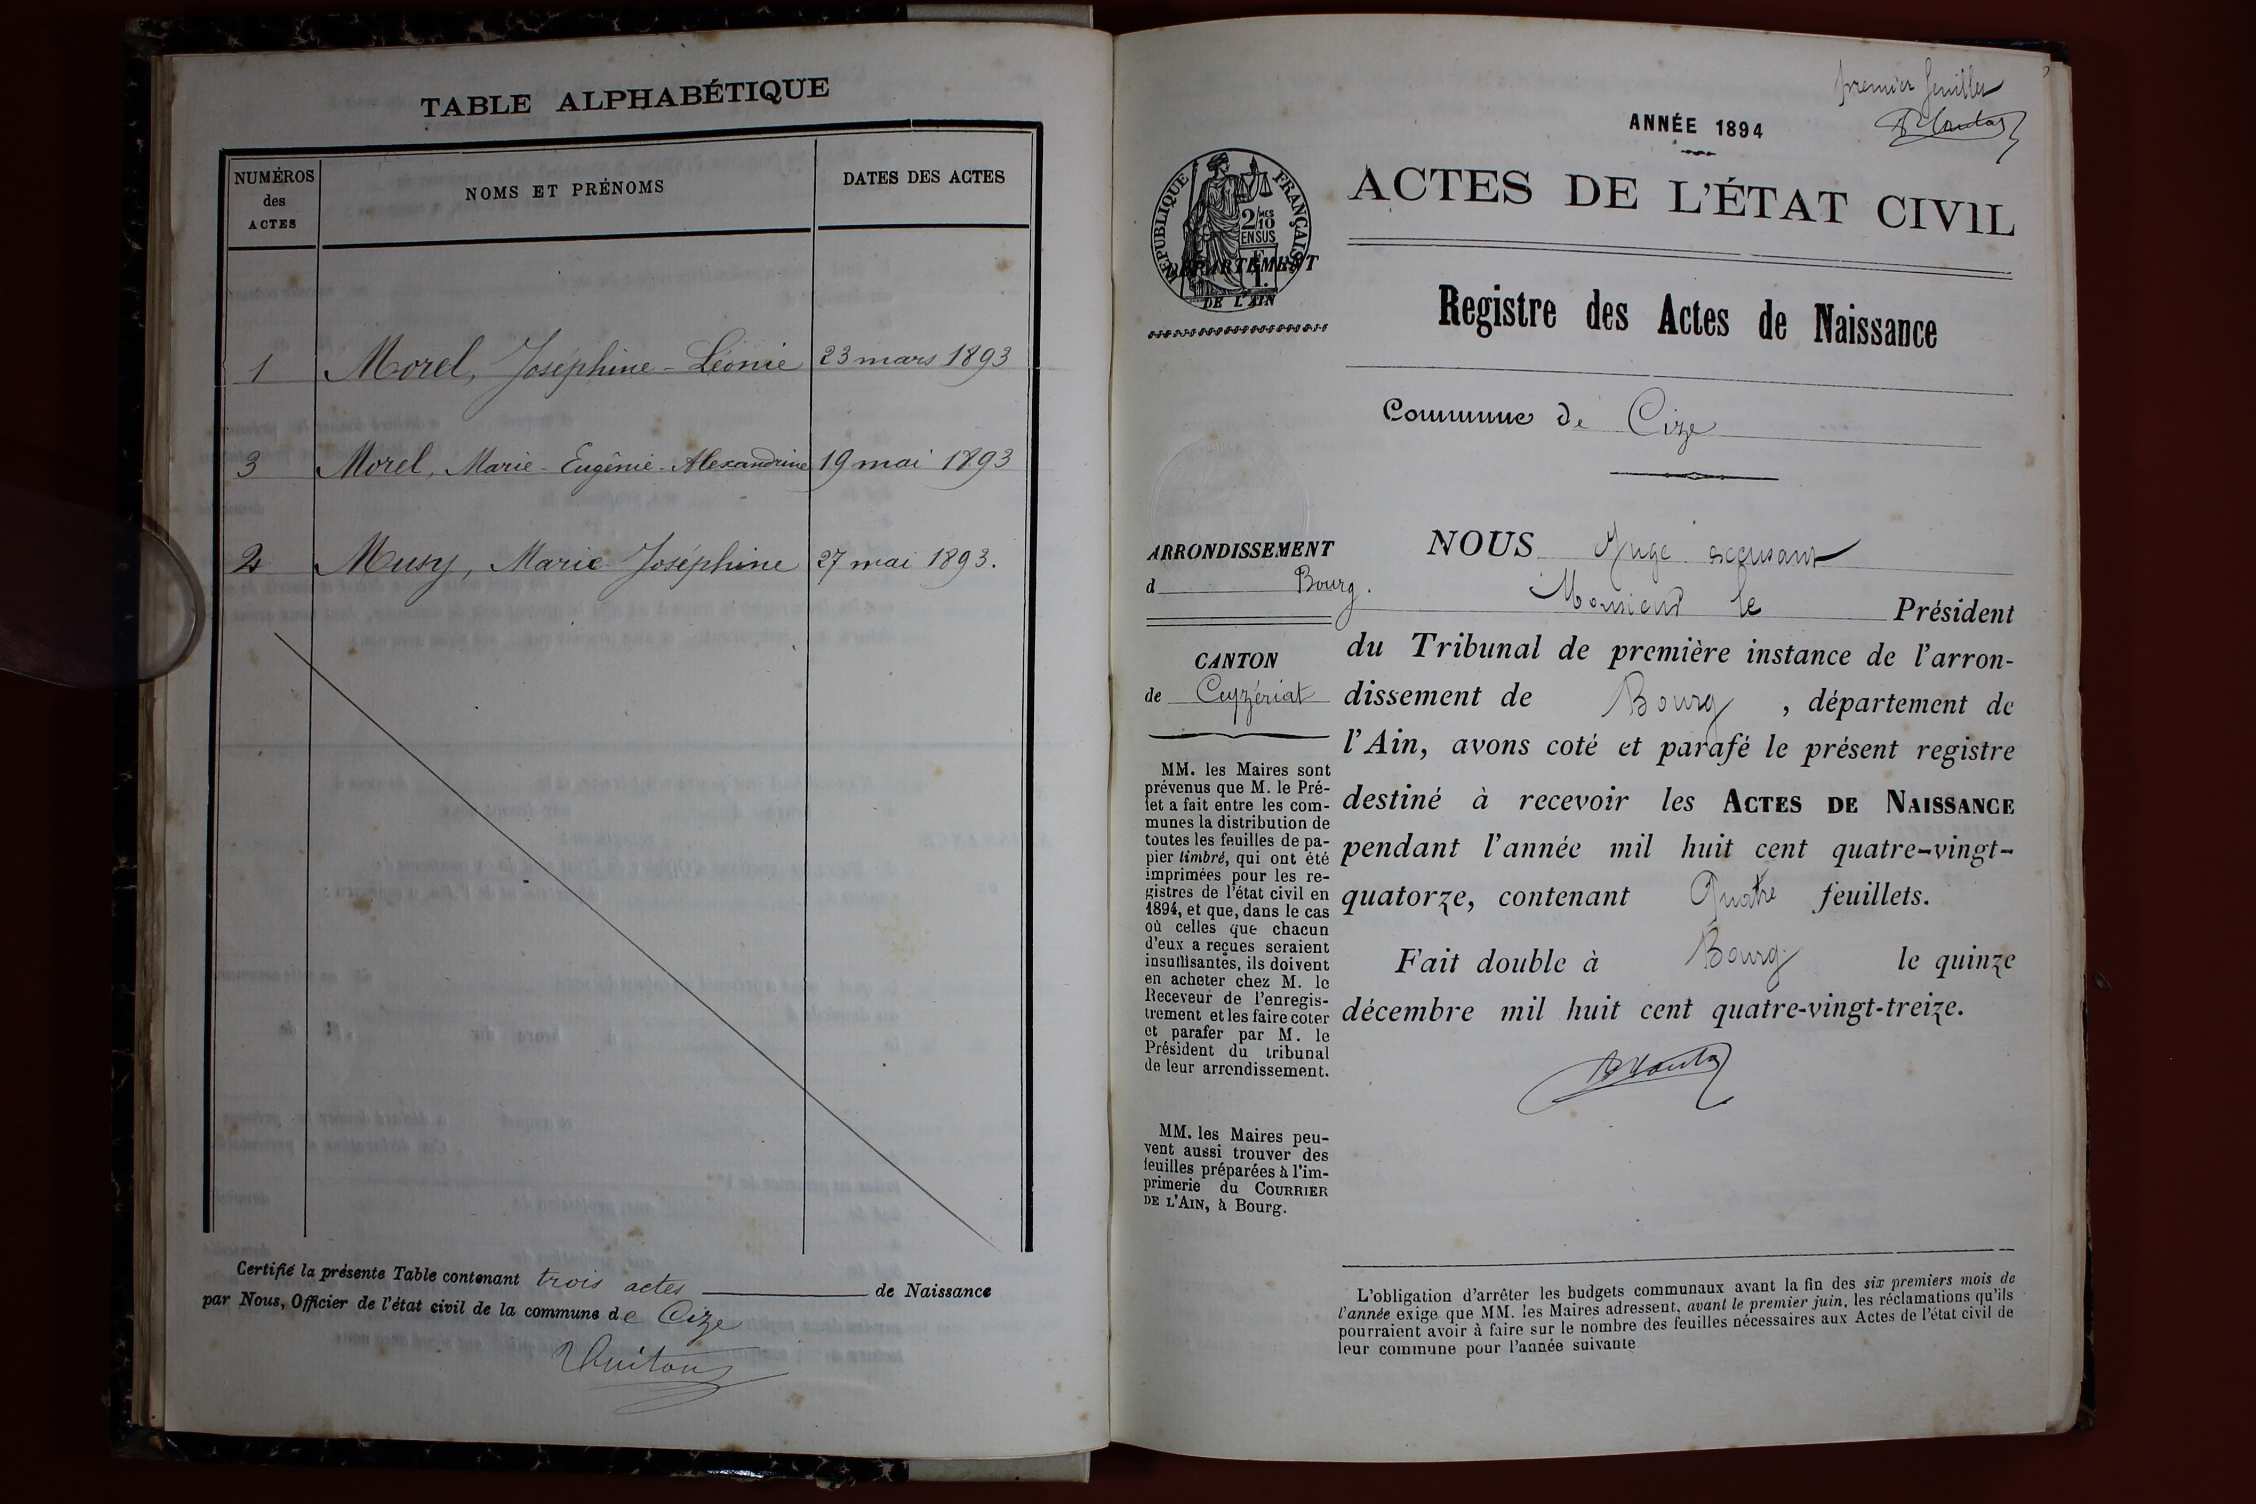 TABLE ALPHABÉTIQUE
NUMÉROS
des
ACTES
NOMS ET PRÉNOMS
DATES DES ACTES
1 Morel, Joséphine-Léonie 23 mars 1893
3 Morel, Marie-Eugénie-Alexandrine 19 mai 1893
2 Musy, Marie Joséphine 27 mai 1893.
Certifié la présente Table contenant trois actes de Naissance
par Nous, Officier de l'état civil de la commune de Cize
premier feuillet
ANNÉE 1894
ACTES DE L'ÉTAT CIVIL
RÉPUBLIQUE FRANÇAISE
2/10 MES
EN SUS
DÉPARTEMENT
DE L'AIN
Registre des Actes de Naissance
Commune de Cize
ARRONDISSEMENT
d Bourg.
CANTON
de Ceyzériat
MM. les Maires sont
prévenus que M. le Pré-
fet a fait entre les com-
munes la distribution de
toutes les feuilles de pa-
pier timbré, qui ont été
imprimées pour les re-
gistres de l'état civil en
1894, et que, dans le cas
où celles que chacun
d'eux a reçues seraient
insuffisantes, ils doivent
en acheter chez M. le
Receveur de l'enregis-
trement et les faire coter
et parafer par M. le
Président du tribunal
de leur arrondissement.
MM. les Maires peu-
vent aussi trouver des
feuilles préparées à l'im-
primerie du COURRIER
DE L'AIN, à Bourg.
NOUS Juge
Monsieur le Président
du Tribunal de première instance de l'arron-
dissement de Bourg, département de
l'Ain, avons coté et parafé le présent registre
destiné à recevoir les ACTES DE NAISSANCE
pendant l'année mil huit cent quatre-vingt-
quatorze, contenant Quatre feuillets.
Fait double à Bourg le quinze
décembre mil huit cent quatre-vingt-treize.
L'obligation d'arrêter les budgets communaux avant la fin des six premiers mois de
l'année exige que MM. les Maires adressent, avant le premier juin, les réclamations qu'ils
pourraient avoir à faire sur le nombre des feuilles nécessaires aux Actes de l'état civil de
leur commune pour l'année suivante